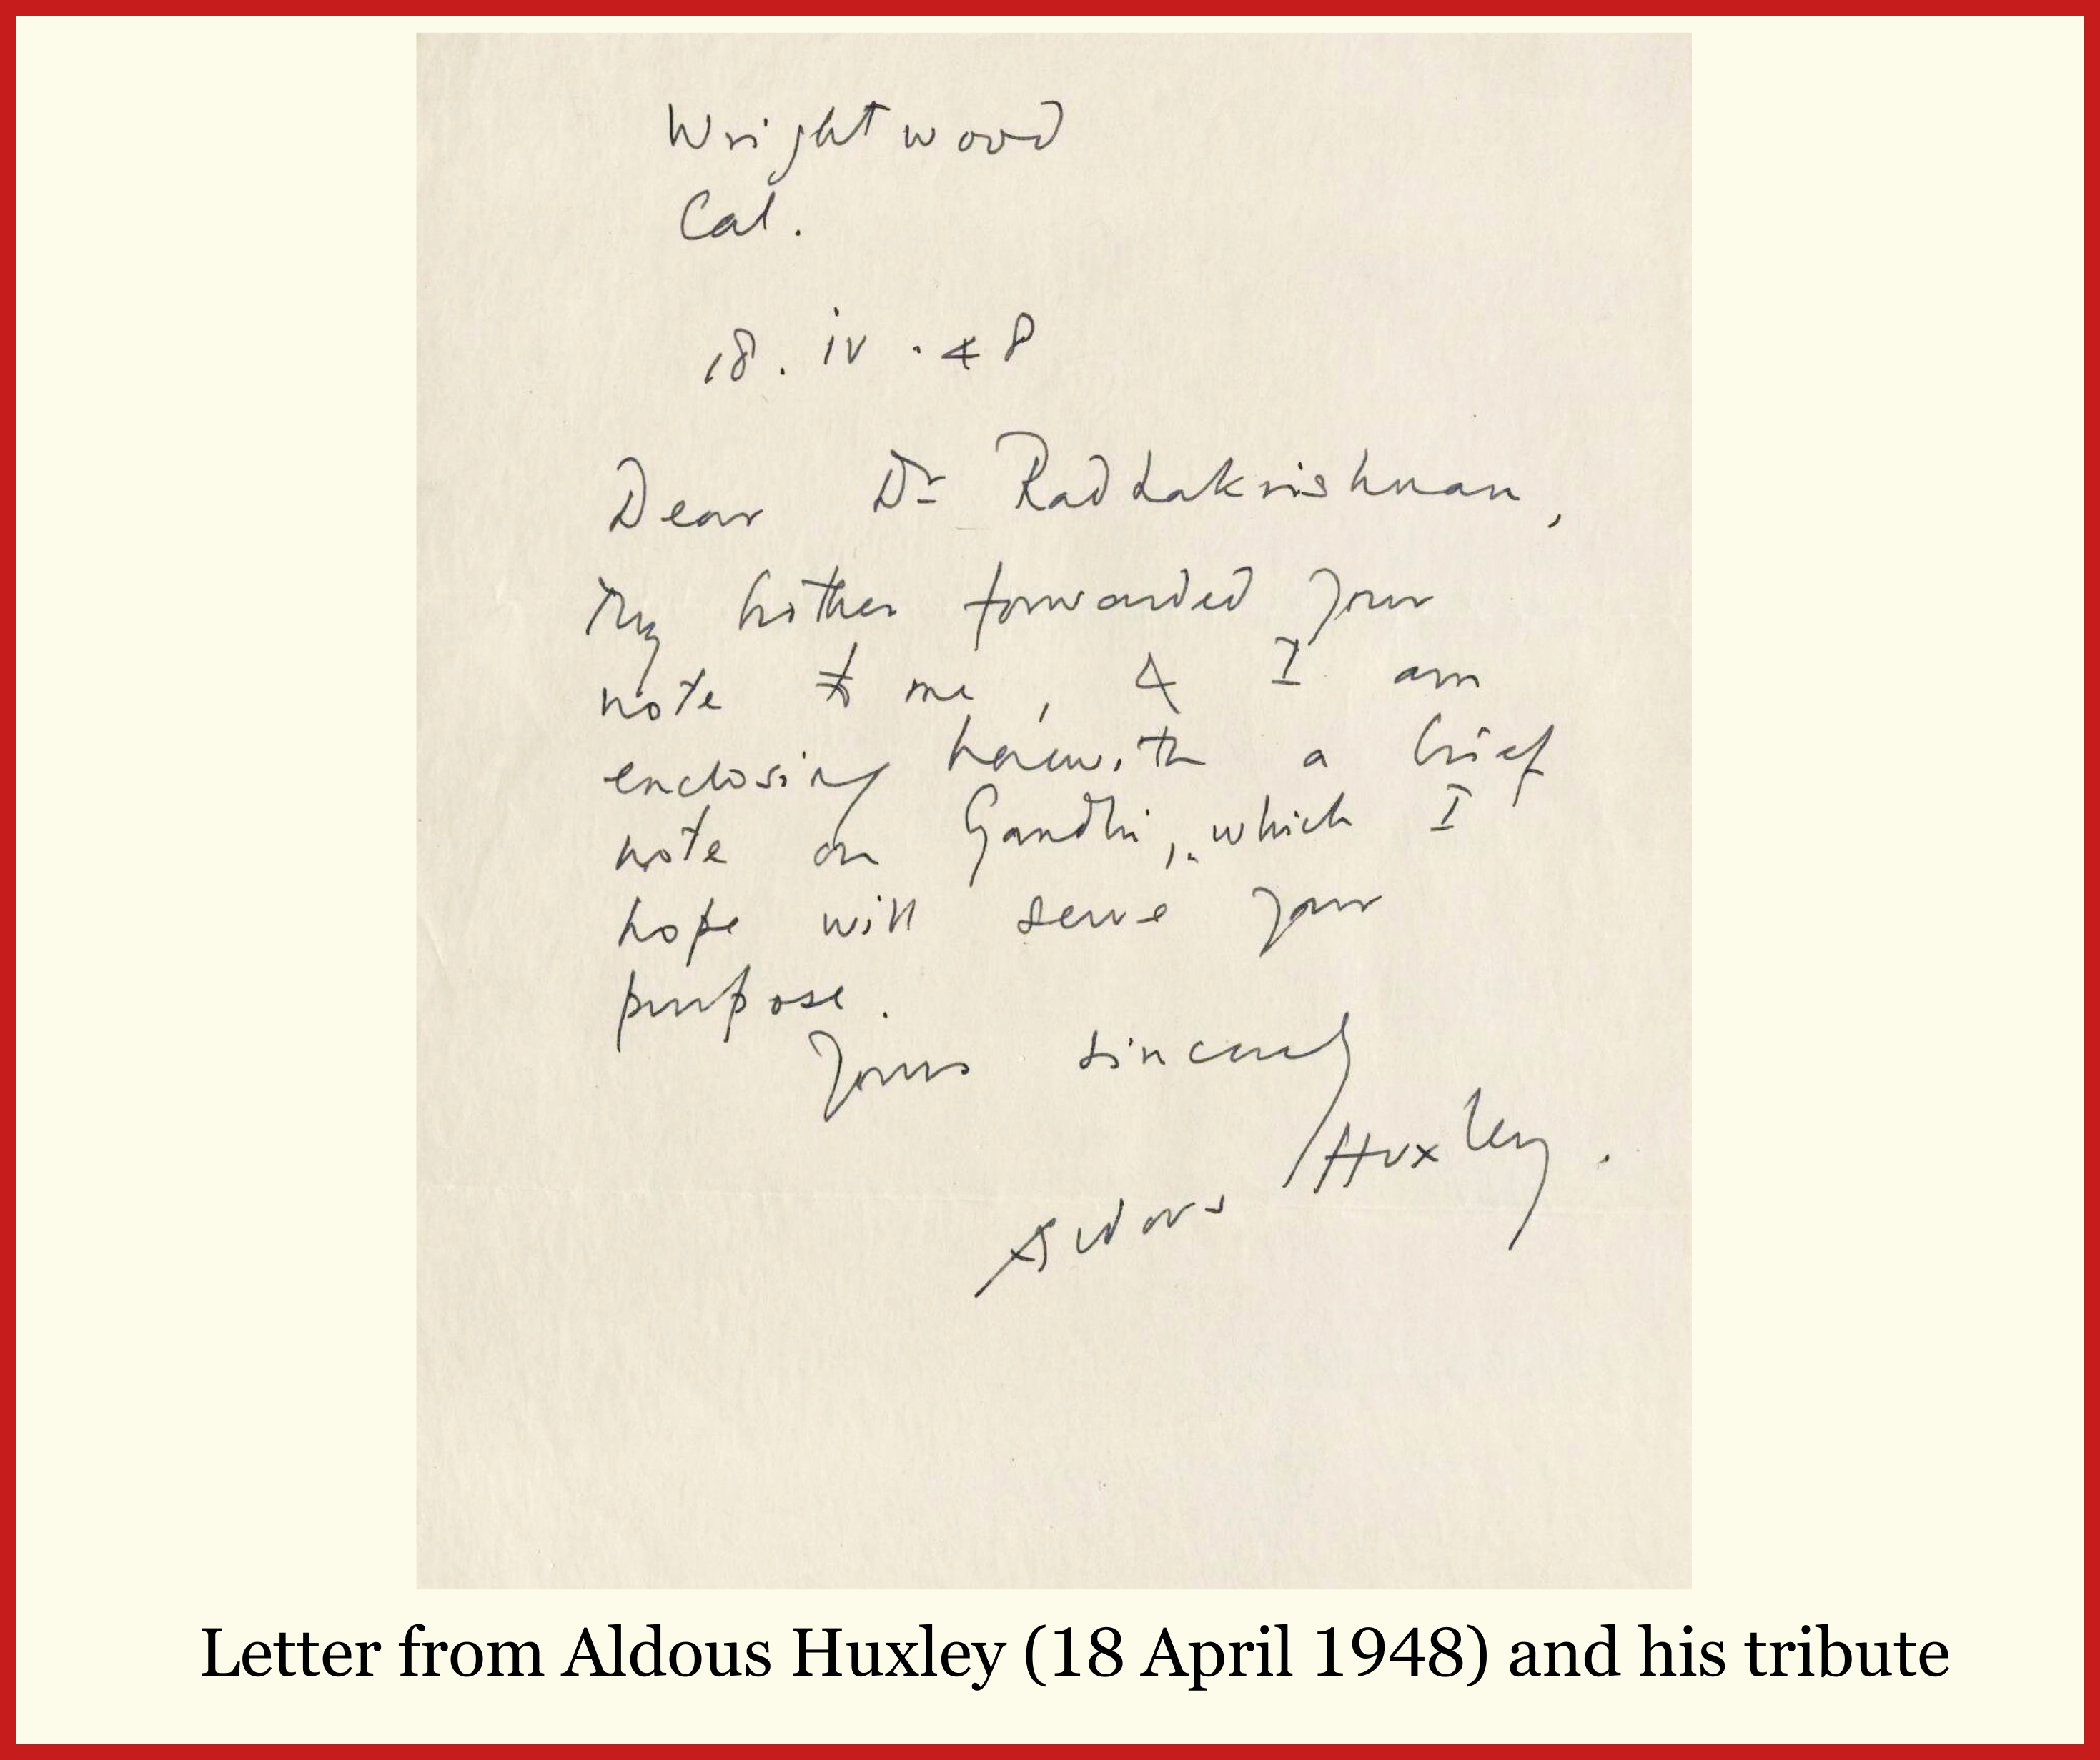 Wrightwood
Cal.
18. iv. 48
Dear Dr Radhakrishnan,
My brother forwarded your
note to me, & I am
enclosing herewith a brief
note on Gandhi, which I
hope will serve your
purpose.
Yours sincerely
Aldous Huxley.
Letter from Aldous Huxley (18 April 1948) and his tribute